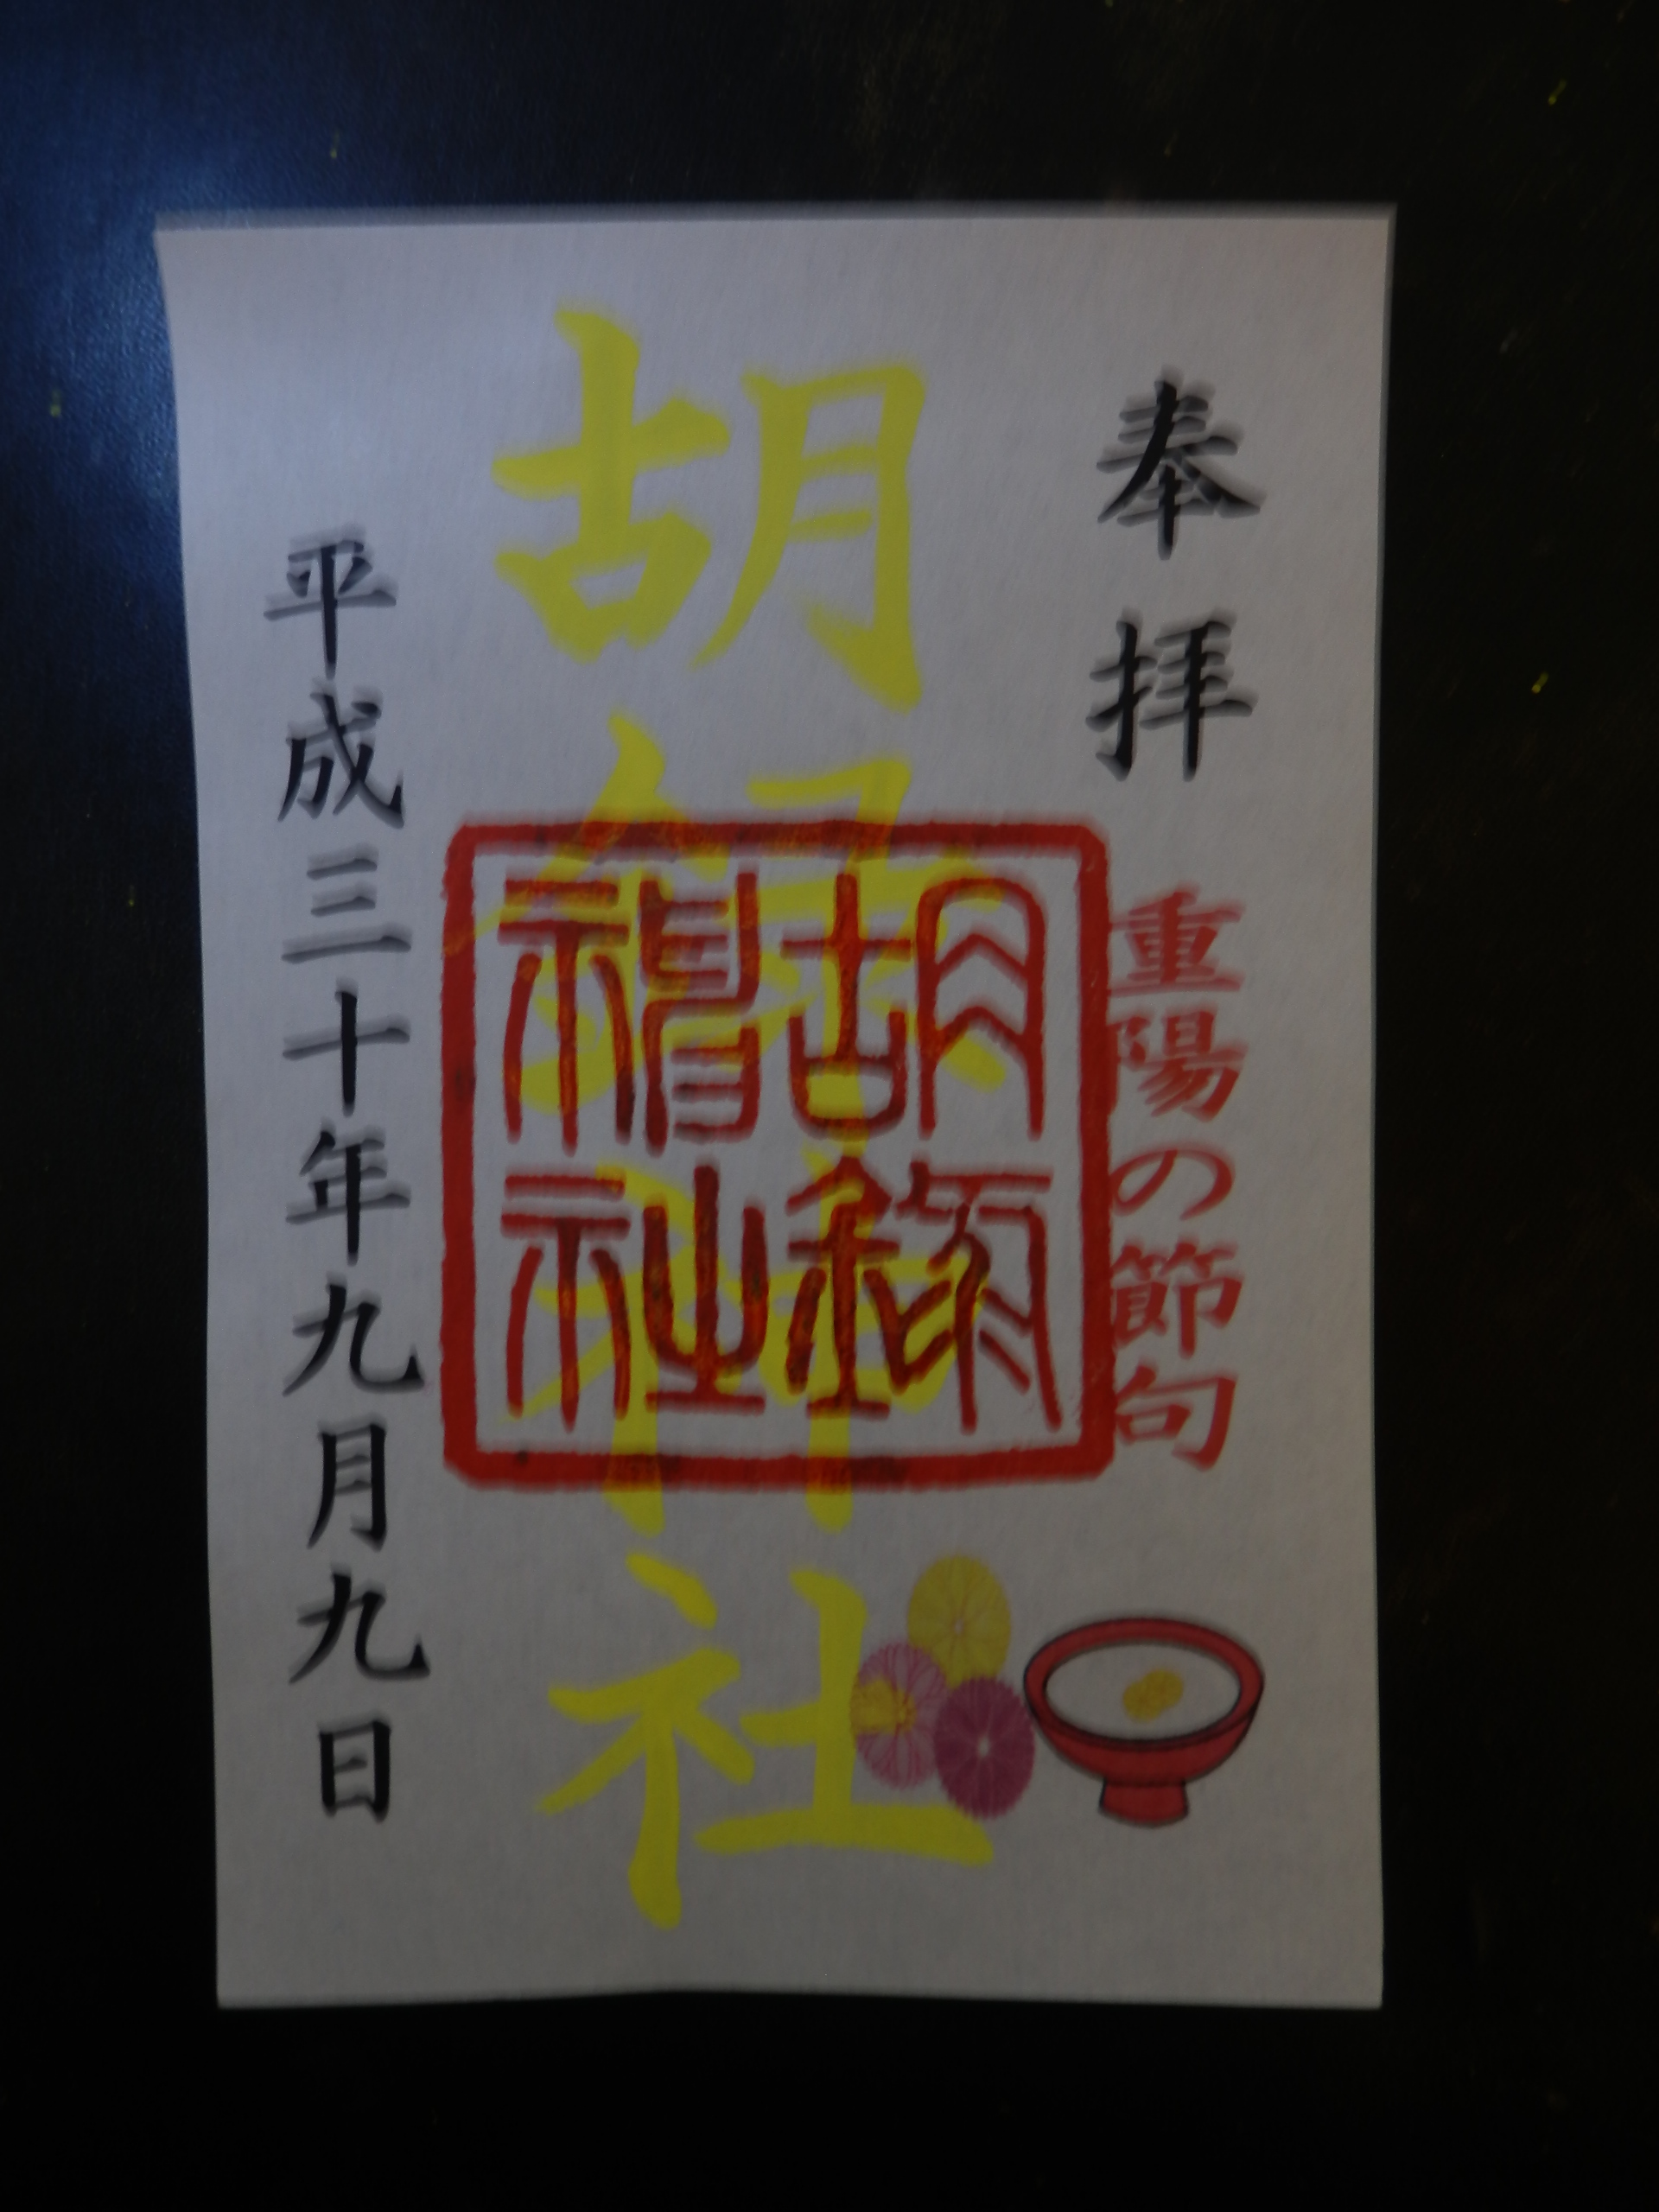 奉拝
重陽の節句
胡録神社
胡録神社
平成三十年九月九日